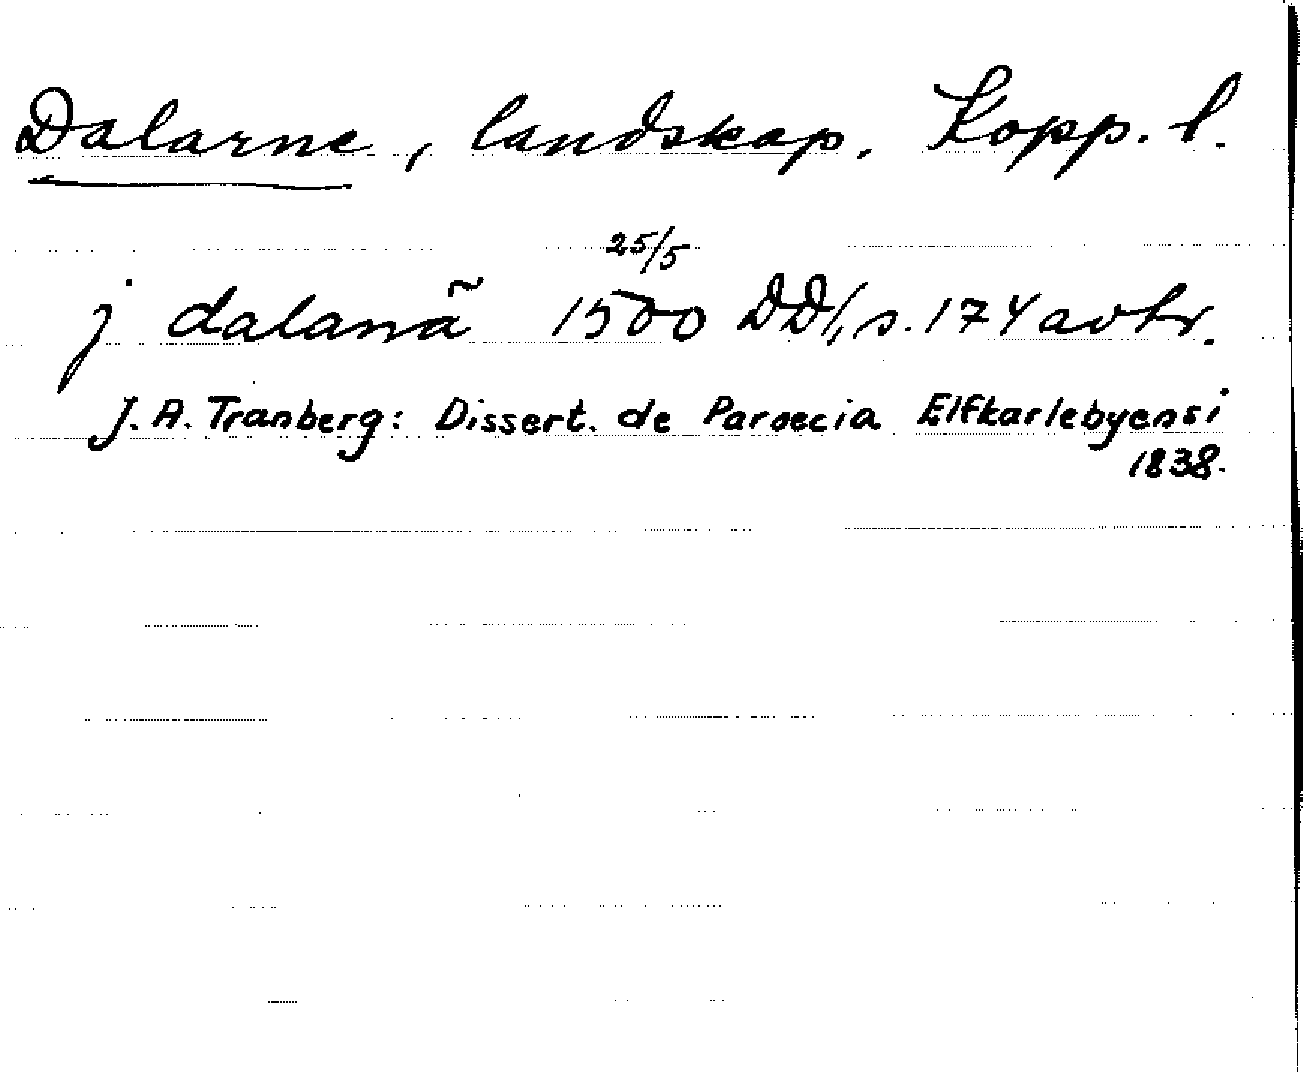 Dalarne, landskap. Kopp. l.
25/5
j dalanã 1500 DD1, s. 174 avtr.
J. A. Tranberg: Dissert. de Paroecia Elfkarlebyensi
1838.